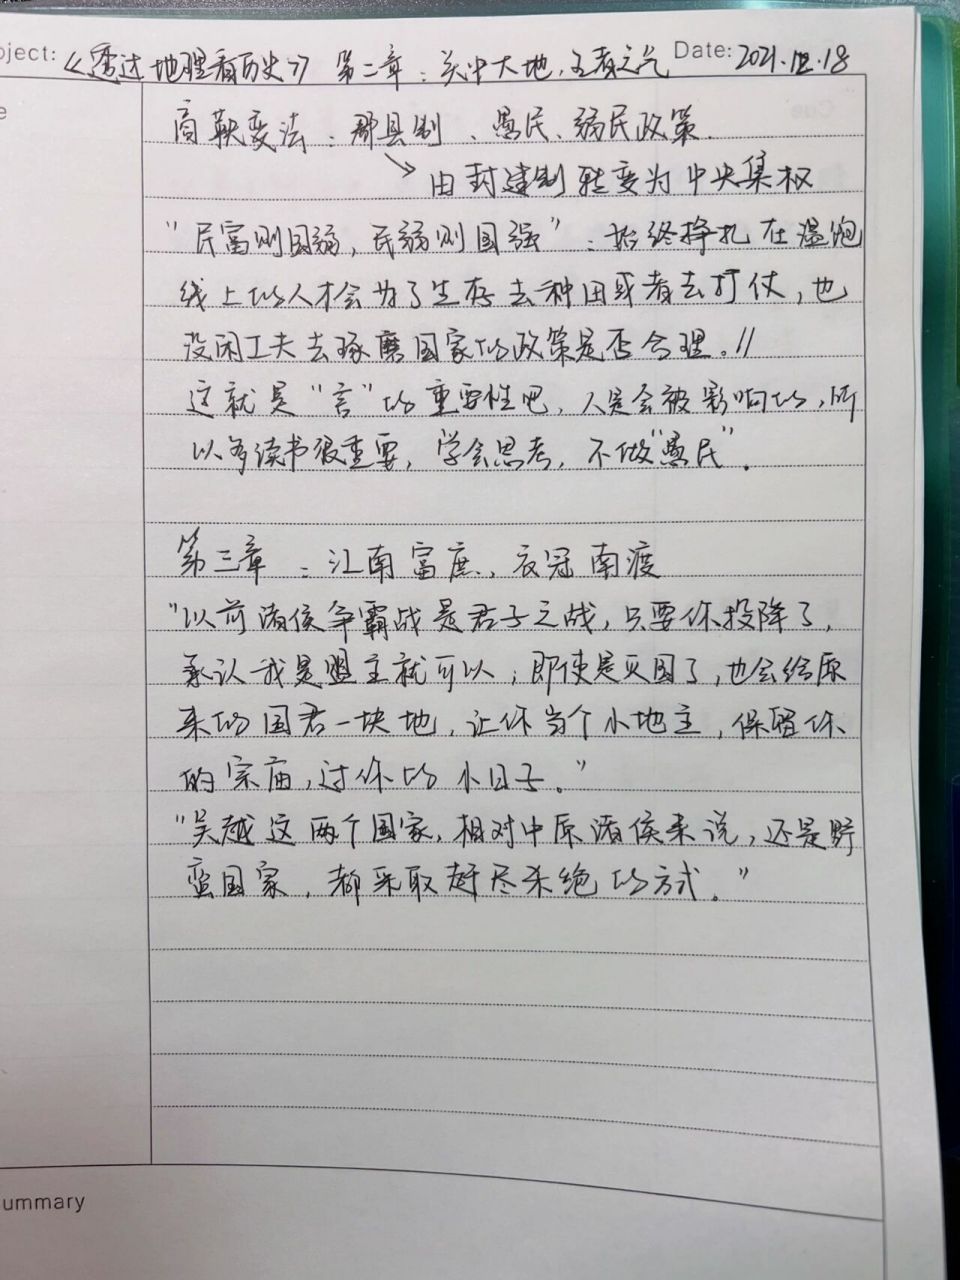 oject: 《透过地理看历史》 第二章：关中大地，王者之气 Date: 2021.12.18
e
商鞅变法：郡县制、愚民、弱民政策.
由封建制转变为中央集权
"民富则国弱，民弱则国强"：始终挣扎在温饱
线上的人才会为了生存去种田或者去打仗，也
没闲工夫去琢磨国家的政策是否合理。//
这就是"言"的重要性吧，人是会被影响的，所
以多读书很重要，学会思考，不做"愚民"。
第三章：江南富庶，衣冠南渡
"以前诸侯争霸战是君子之战，只要你投降了，
承认我是盟主就可以；即使是灭国了，也会给原
来的国君一块地，让你当个小地主，保留你
的宗庙，过你的小日子。"
"吴越这两个国家，相对中原诸侯来说，还是野
蛮国家，都采取赶尽杀绝的方式。"
ummary